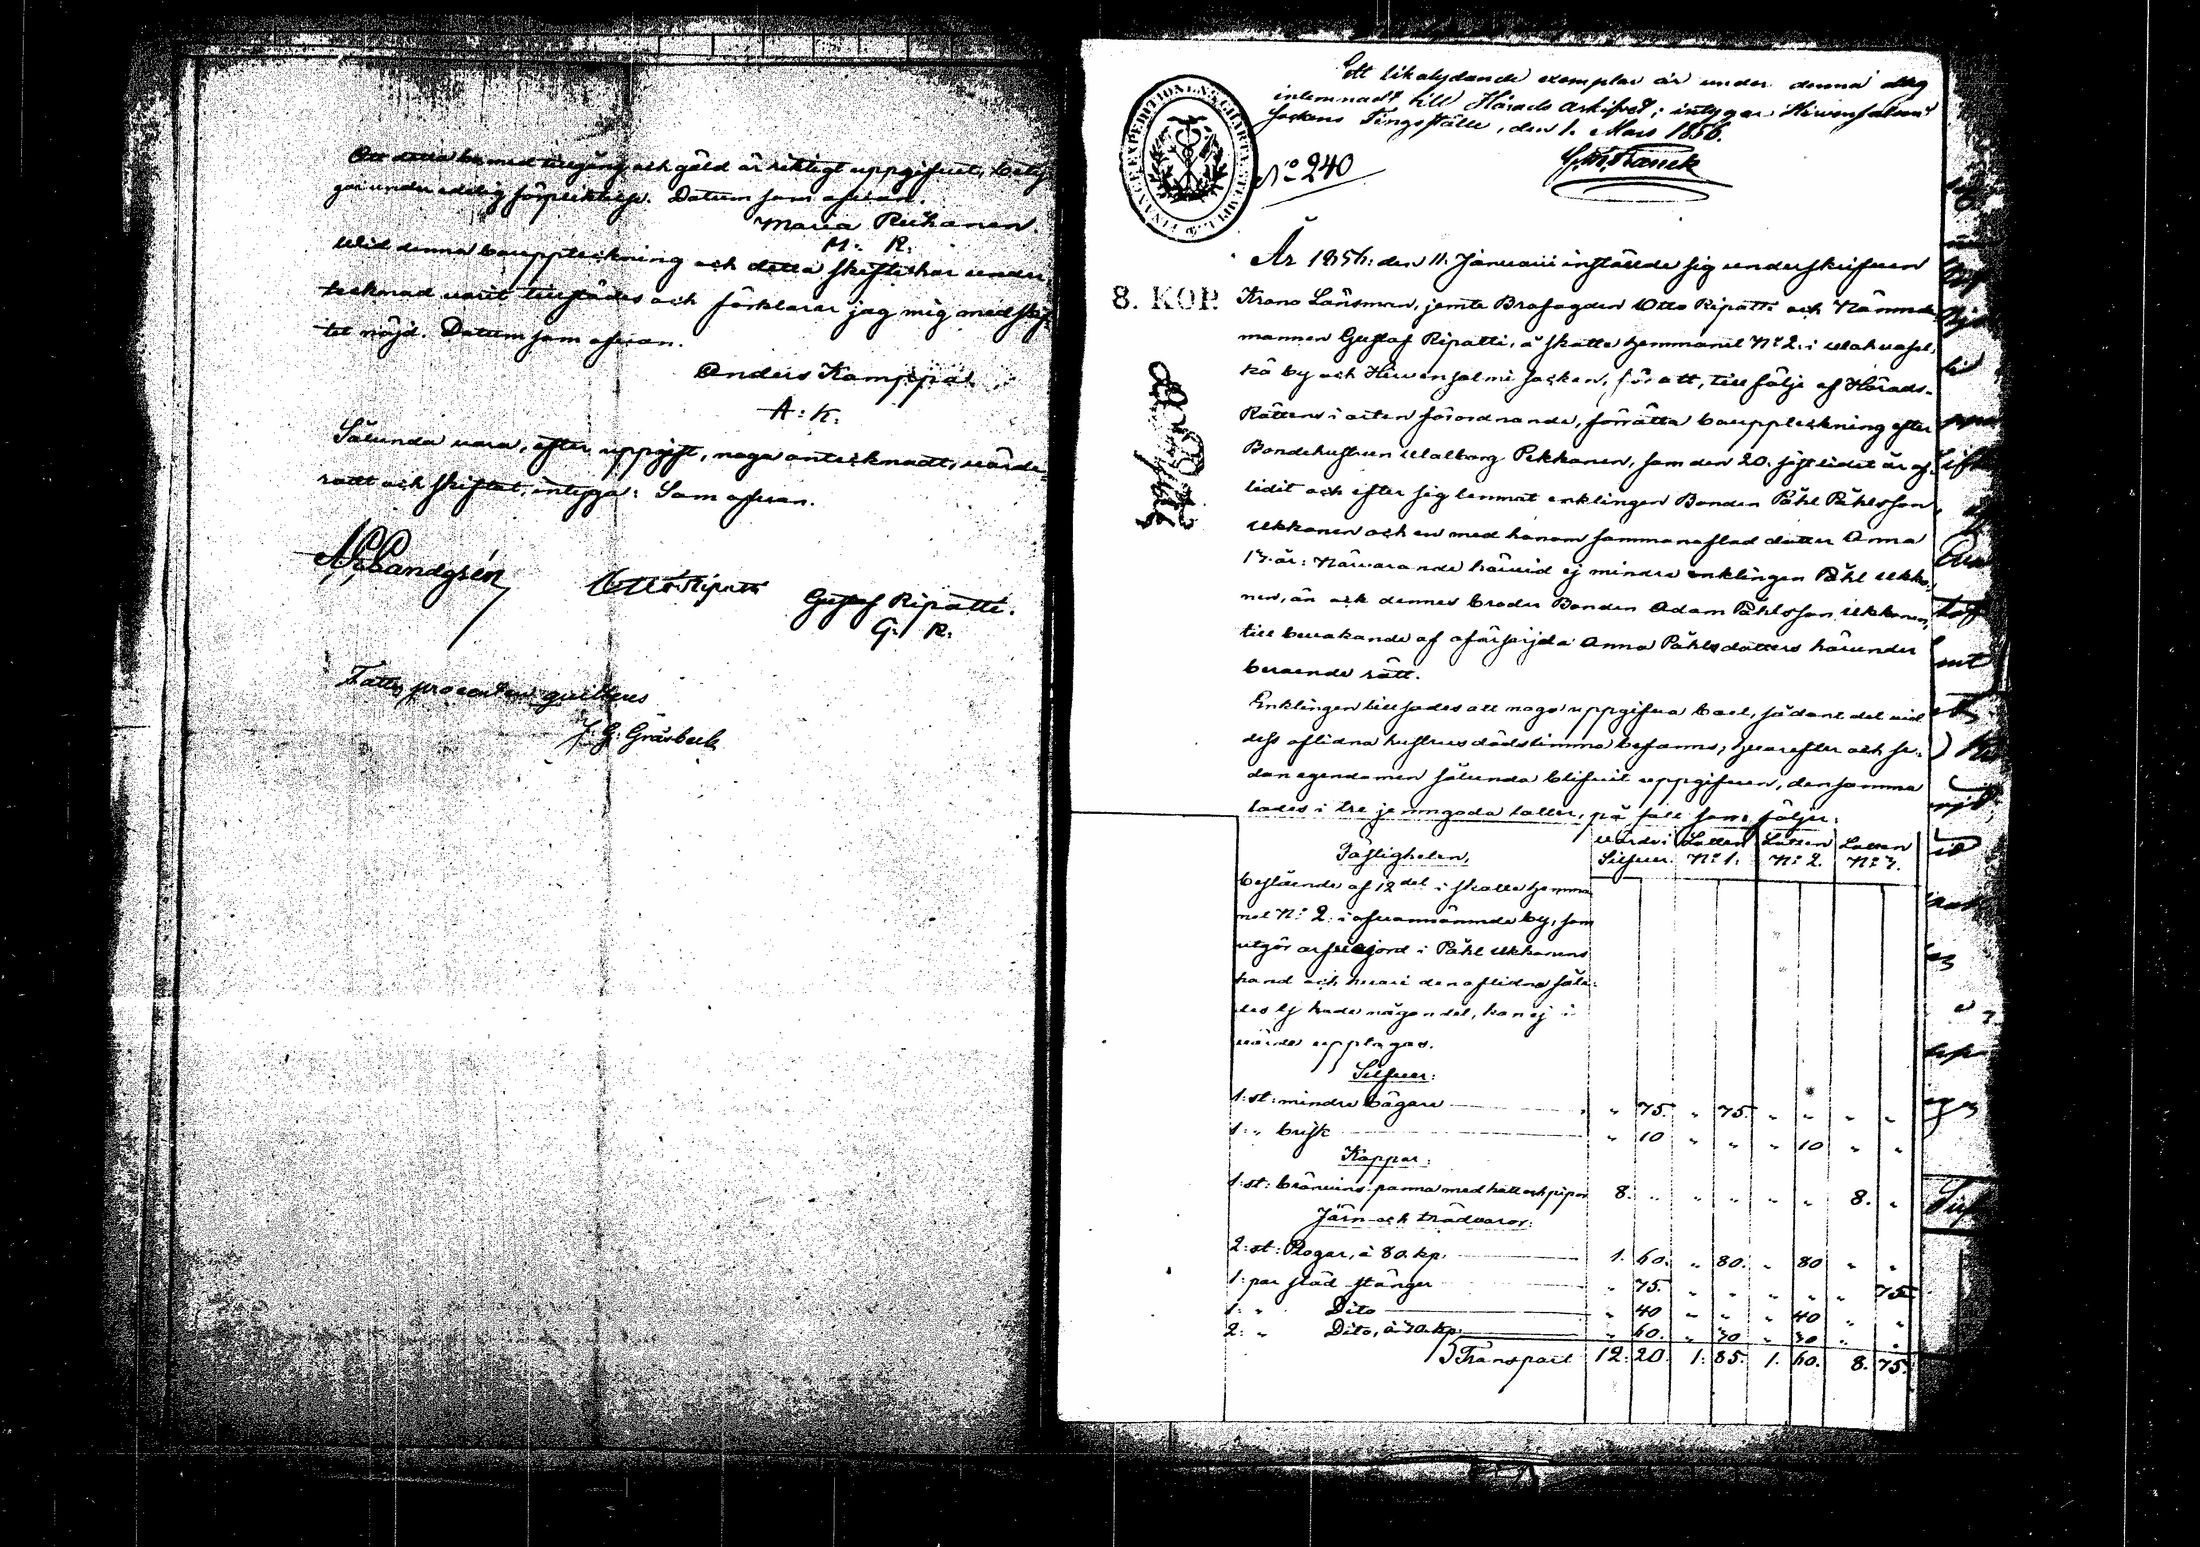 Att detta bo med tillgång och gäld är riktigt uppgifvet, bety-
gar under edelig förpliktelse. Datum som ofvan.
Maria Reihanen
M: R:
Wid denna bouppteckning och detta skifte har under-
tecknad varit tillstädes och förklarar jag mig med skif-
tet nöjd. Datum som ofvan.
Anders Kamppa
A: K:
Sålunda vara, efter uppgift, noga antecknadt, värde-
radt och skiftat, intyga: Som ofvan.
Otto Ripatti
Gustaf Ripatti.
G: R:
Fattig procenten quitteras
J. G. Gräsbeck
Ett likalydande exemplar är under denna dag
inlemnadt till Härads Arkifvet; intygar. Hirvensalmi
Sockens Tingsställe, den 1. Mars 1856.
FINANCE EXPEDITIONENS CHARTÆ STÄMPEL
No 240
År 1856. den 11. Januarii inställde sig underskrifven
8. KOP.
Krono Länsman, jemte Brofogden Otto Ripatti och Nämnde-
mannen Gustaf Ripatti, å skatte hemmanet No 2. i Wahvasel-
kä by och Hirvensalmi socken, för att, till följe af Härads-
Rättens i orten förordnande, förrätta bouppteckning efter
Bondehustrun Walborg Pekkanen, som den 20. sistlidet år af-
lidit och efter sig lemnat enklingen Bonden Påhl Påhlsson
Ukkonen och en med honom sammanaflad dotter Anna
17. år: Närvarande härvid ej mindre enklingen Påhl Ukko-
nen, än ock dennes broder Bonden Adam Påhlsson Ukkonen,
till bevakande af oförsörjda Anna Påhlsdotters härunder
beroende rätt.
Enklingen tillsades att noga uppgifva boet, sådant det vid
dess aflidna hustrus dödstimma befanns; hvarefter och se-
dan egendomen sålunda blifvit uppgifven, densamma
lades i tre jemngoda lotter, på sätt som följer:
Fastigheten,
Värde i Silfver. Lotten No 1. Lotten No 2. Lotten No 3.
bestående af 12del i skatte hemma-
net No 2. i ofvannämnde by, som
utgör arfvejord i Påhl Ukkonens
hand och hvari den aflidna såle-
des ej hade någon del, kan ej i
värde upptagas.
Silfver:
1: st: mindre bägare " 75. " 75. " " " "
1: " brisk " 10 " " " 10 " "
Koppar:
1: st: brännvins panna med hatt och pipor 8. " " " " " 8. "
Järn och trädvaror:
2: st: Plogar, à 80. kp. 1. 60. " 80. " 80 " "
1: par städ stänger " 75. " " " " " 75
1: " Dito " 40 " " " 40 " "
2: " Dito, à 30. kp: " 60. " 30 " 30 " "
Transport 12: 20. 1: 85. 1. 60. 8. 75.